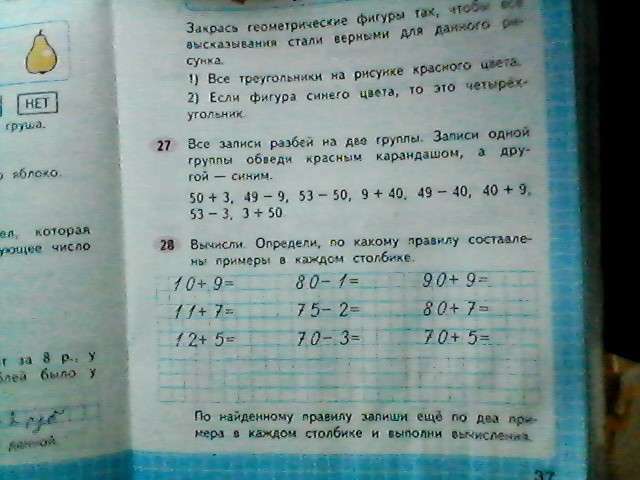 НЕТ
груша.
яблоко.
которая
число
за 8 р., у
было у
Закрась геометрические фигуры так, чтобы все
высказывания стали верными для данного ри-
сунка.
1) Все треугольники на рисунке красного цвета.
2) Если фигура синего цвета, то это четырёх-
угольник.
27 Все записи разбей на две группы. Записи одной
группы обведи красным карандашом, а дру-
гой — синим.
50 + 3, 49 − 9, 53 − 50, 9 + 40, 49 − 40, 40 + 9,
53 − 3, 3 + 50.
28 Вычисли. Определи, по какому правилу составле-
ны примеры в каждом столбике.
10+9= 80−1= 90+9=
11+7= 75−2= 80+7=
12+5= 70−3= 70+5=
По найденному правилу запиши ещё по два при-
мера в каждом столбике и выполни вычисления.
37